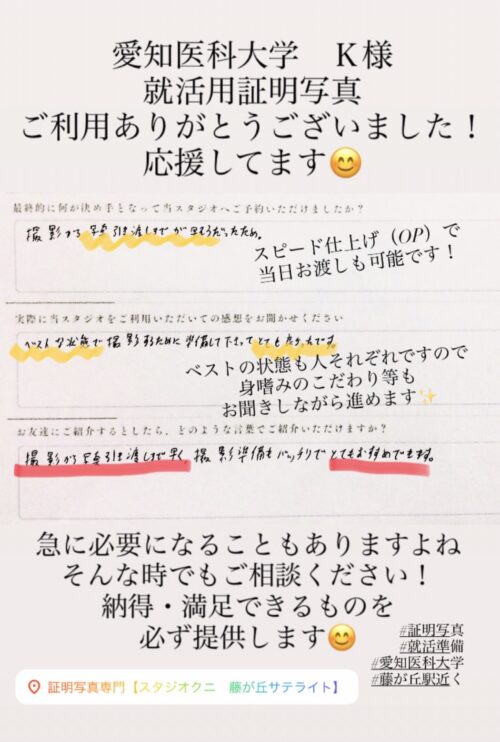 愛知医科大学　K様
就活用証明写真
ご利用ありがとうございました！
応援してます😊
最終的に何が決め手となって当スタジオへご予約いただけましたか？
撮影から写真引き渡しまでが早そうだったため。
スピード仕上げ（OP）で
当日お渡しも可能です！
実際に当スタジオをご利用いただいての感想をお聞かせください
ベストな状態で撮影するために準備して下さってとても良かったです。
ベストの状態も人それぞれですので
身嗜みのこだわり等も
お聞きしながら進めます✨
お友達にご紹介するとしたら、どのような言葉でご紹介いただけますか？
撮影から写真引き渡しまで早く、撮影準備もバッチリでとてもおすすめできます。
急に必要になることもありますよね
そんな時でもご相談ください！
納得・満足できるものを
必ず提供します😊
#証明写真
#就活準備
#愛知医科大学
#藤が丘駅近く
証明写真専門【スタジオクニ　藤が丘サテライト】